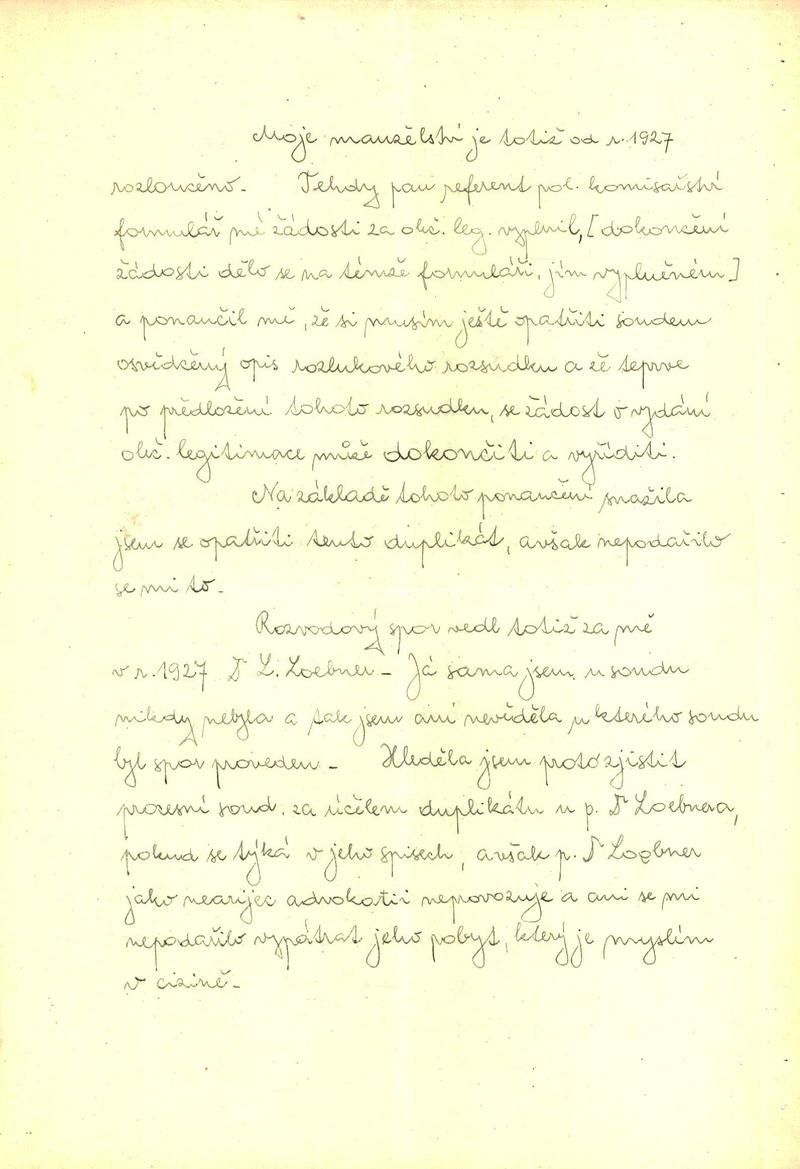 Moje manželství je totiž od r. 1927
rozloučeno. Tehdy pan referent pol. komisařství
formulář mé žádosti za obč. leg. vyplnil, [dokončení
žádosti dělo se na témže formuláři, jím vyplněném]
a ponaučil mě, že si musím ještě opatřiti soudem
osvědčený opis rozlukového rozsudku a že teprve
po předložení tohoto rozsudku, se žádost o vydání
obč. legitimace může dokončiti a vyříditi.
Na základě tohoto ponaučení snažila
jsem se opatřiti tento duplikát, avšak nepodařilo
se mi to.
Rozvodový spor vedl totiž za mě
v r. 1927 Dr L. Loebner – Já sama jsem u soudu
nikdy nebyla a tak jsem ani nevěděla u kterého soudu
byl spor proveden – Hleděla jsem proto zjistit
procesní soud, za účelem duplikátu u p. Dr Loebnera,
pokud se týká v jeho spisech, avšak p. Dr Loebner
jako nearijec advokotii neprovozuje a ani se mi
nepodařilo vypátrat jeho pobyt, který je myslím
v cizině –